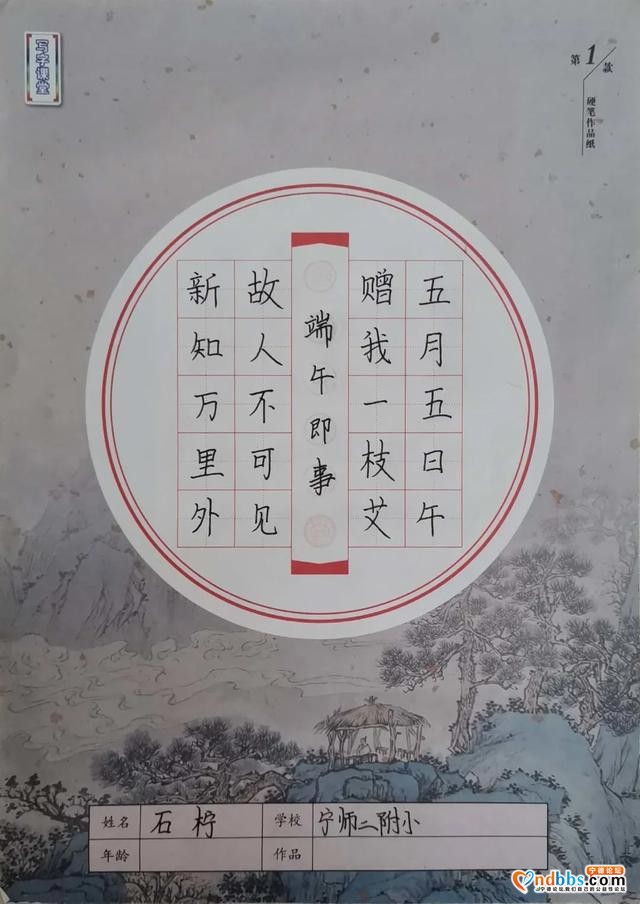 写字课堂
第1款
硬笔作品纸
五月五日午
赠我一枝艾
端午即事
故人不可见
新知万里外
姓名 石柠 学校 宁师二附小
年龄 作品
宁德论坛
ndbbs.com